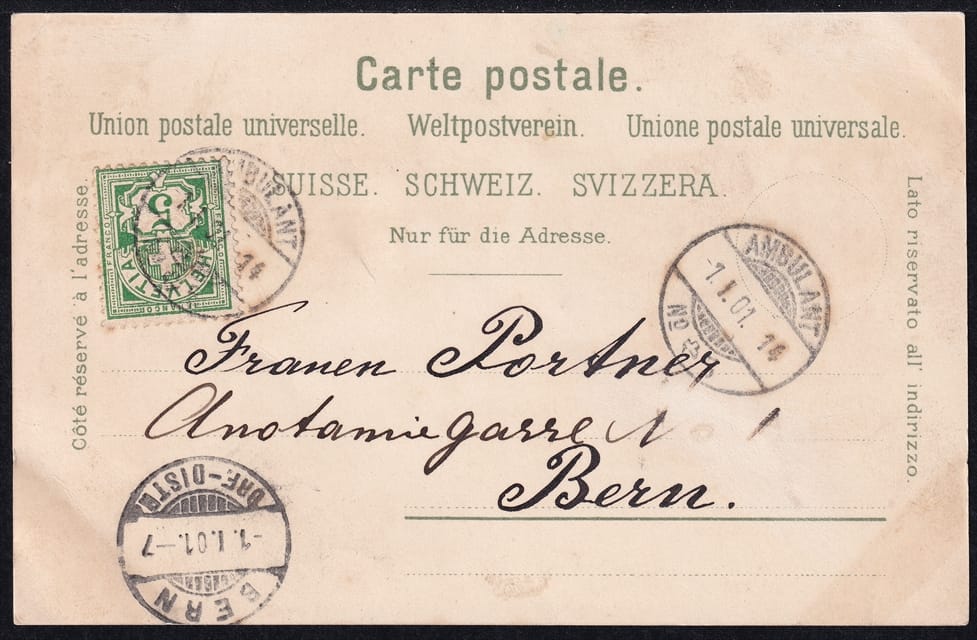 Carte postale.
Union postale universelle. Weltpostverein. Unione postale universale.
SUISSE. SCHWEIZ. SVIZZERA.
Nur für die Adresse.
Côté réservé à l'adresse.
Lato riservato all' indirizzo.
FRANCO
HELVETIA
5
AMBULANT
14
AMBULANT
-1.I.01. 14
No
Frauen Portner
Anotamiegasse
Bern.
BRF.-DISTR
-1.I.01.-7
BERN